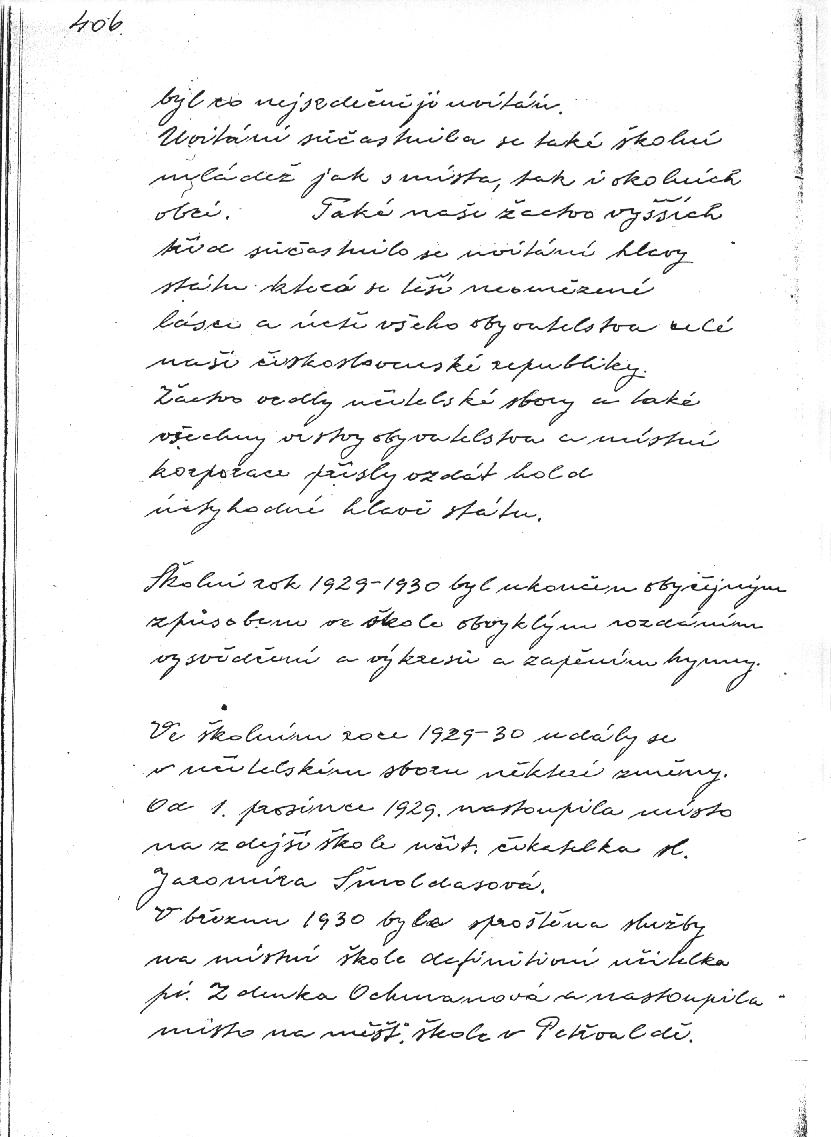 406.
byl co nejsrdečněji uvítán.
Uvítání súčastnila se také školní
mládež jak s místa, tak i okolních
obcí. Také naše žactvo vyšších
tříd súčastnilo se uvítání hlavy
státu která se těší neomezené
lásce a úctě všeho obyvatelstva celé
naší československé republiky.
Žactvo vedly učitelské sbory a také
všechny vrstvy obyvatelstva a místní
korporace přišly vzdát hold
úctyhodné hlavě státu.
Školní rok 1929-1930 byl ukončen obyčejným
způsobem ve škole obvyklým rozdáním
vysvědčení a výkresů a zapěním hymny.
Ve školním roce 1929-30 udály se
v učitelském sboru některé změny.
Od 1. prosince 1929. nastoupila místo
na zdejší škole učit. čekatelka sl.
Jaromíra Šmoldasová.
V březnu 1930 byla sproštěna služby
na místní škole definitivní učitelka
pí. Zdenka Ochmanová a nastoupila
místo na měšť. škole v Petřvaldě.